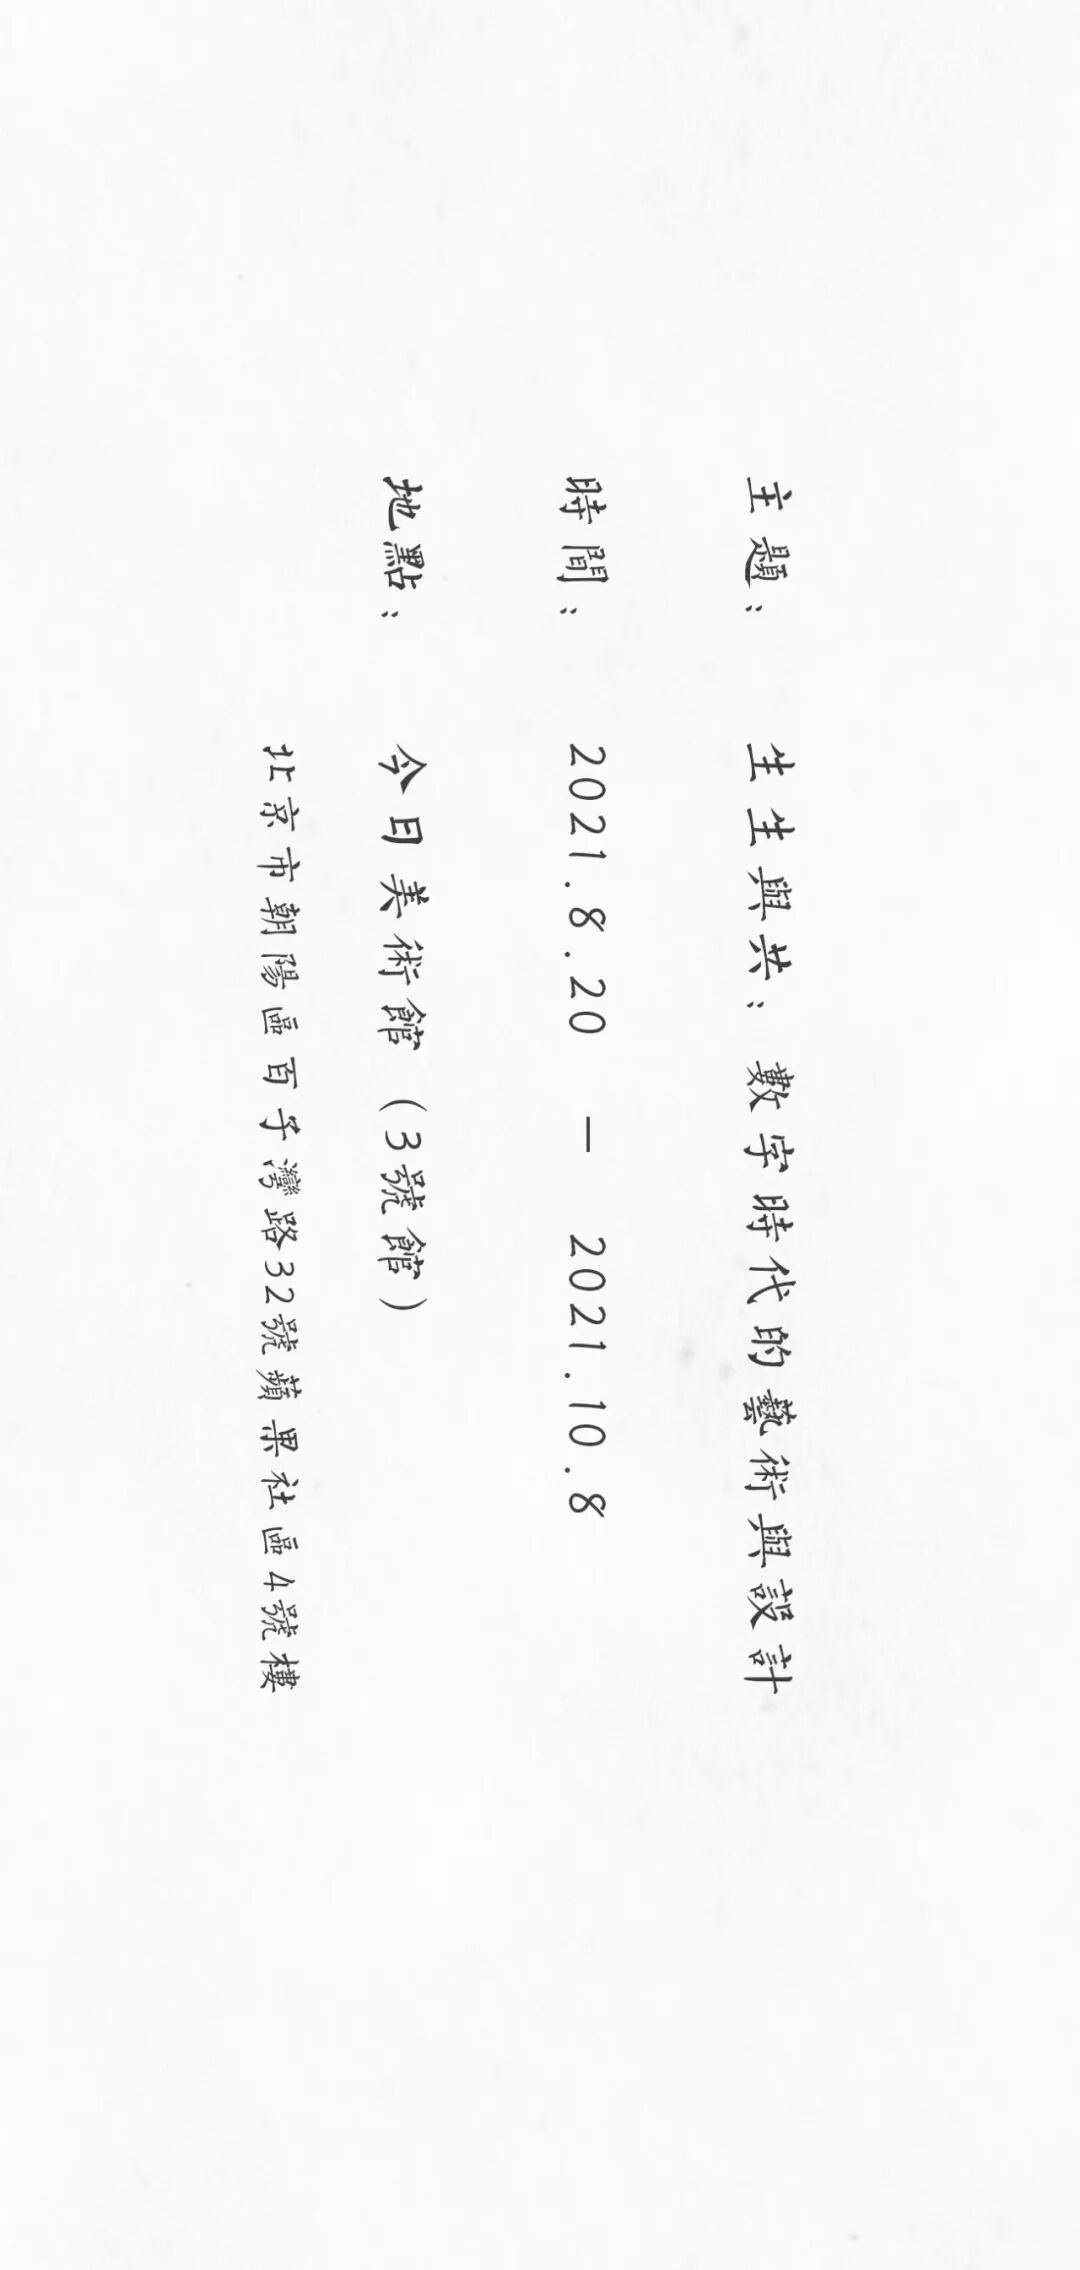 主題： 生生與共：數字時代的藝術與設計
時間： 2021.8.20 — 2021.10.8
地點： 今日美術館（3號館）
北京市朝陽區百子灣路32號蘋果社區4號樓